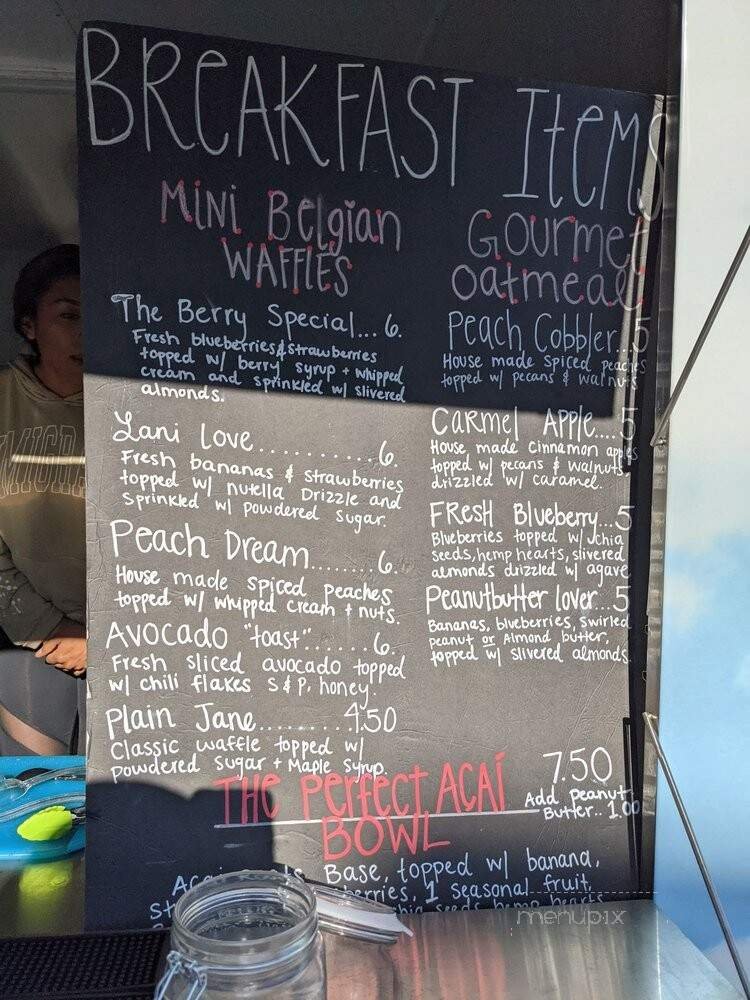 BREAKFAST Items
MINI Belgian
WAFFLES
The Berry Special... 6.
Fresh blueberries & strawberries
topped w/ berry syrup + whipped
cream and sprinkled w/ slivered
almonds.
Lani Love.......... 6.
Fresh bananas & strawberries
topped w/ nutella Drizzle and
sprinkled w/ powdered sugar.
Peach Dream........ 6.
House made spiced peaches
topped w/ whipped cream + nuts.
Avocado "toast"...... 6.
Fresh sliced avocado topped
w/ chili flakes S & P, honey.
Plain Jane........ 4.50
Classic waffle topped w/
powdered sugar + Maple syrup.
Gourmet
oatmeal
Peach Cobbler...5
House made spiced peaches
topped w/ pecans & walnuts
Carmel Apple....5
House made cinnamon apples
topped w/ pecans & walnuts,
drizzled w/ caramel.
FResH Blueberry...5
Blueberries topped w/ chia
seeds, hemp hearts, slivered
almonds drizzled w/ agave
Peanutbutter lover..5
Bananas, blueberries, swirled
peanut or Almond butter,
topped w/ slivered almonds.
THe Perfect ACAÍ
BOWL
7.50
Add peanut
Butter.. 1.00
Base, topped w/ banana,
1 seasonal fruit,
seeds hemp hearts
menupix